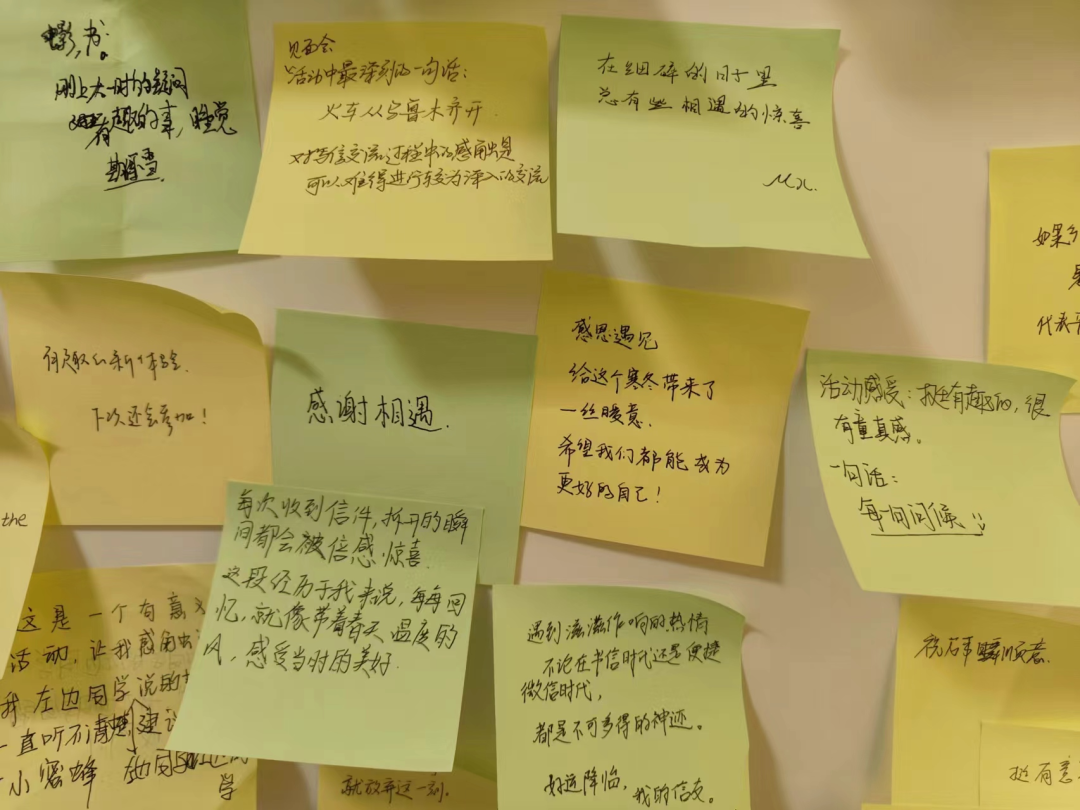 电影，书。
刚上大一时的疑问
有趣的事，睡觉
见面会
活动中最深刻的一句话：
火车从乌鲁木齐开
对书信交流过程中的感触是
可以难得进行较为深入的交流
在细碎的日子里
总有些相遇的惊喜
如果
代表
有趣的新体验.
下次还会参加！
感谢相遇.
感恩遇见
给这个寒冬带来了
一丝暖意.
希望我们都能成为
更好的自己！
活动感受：挺有趣的，很
有童真感。
一句话：
每一句问候
the
每次收到信件，拆开的瞬
间都会被倍感惊喜
这段经历于我来说，每每回
忆，就像带着春天温度的
风，感受当时的美好.
这是一个有意义
活动，让我感触
我左边同学说的
一直听不清楚建议
小蜜蜂
学
遇到滋滋作响的热情
不论在书信时代还是便捷
微信时代，
都是不可多得的神迹。
好运降临，我的信友。
祝万事顺意.
挺有意
就放弃这一刻.